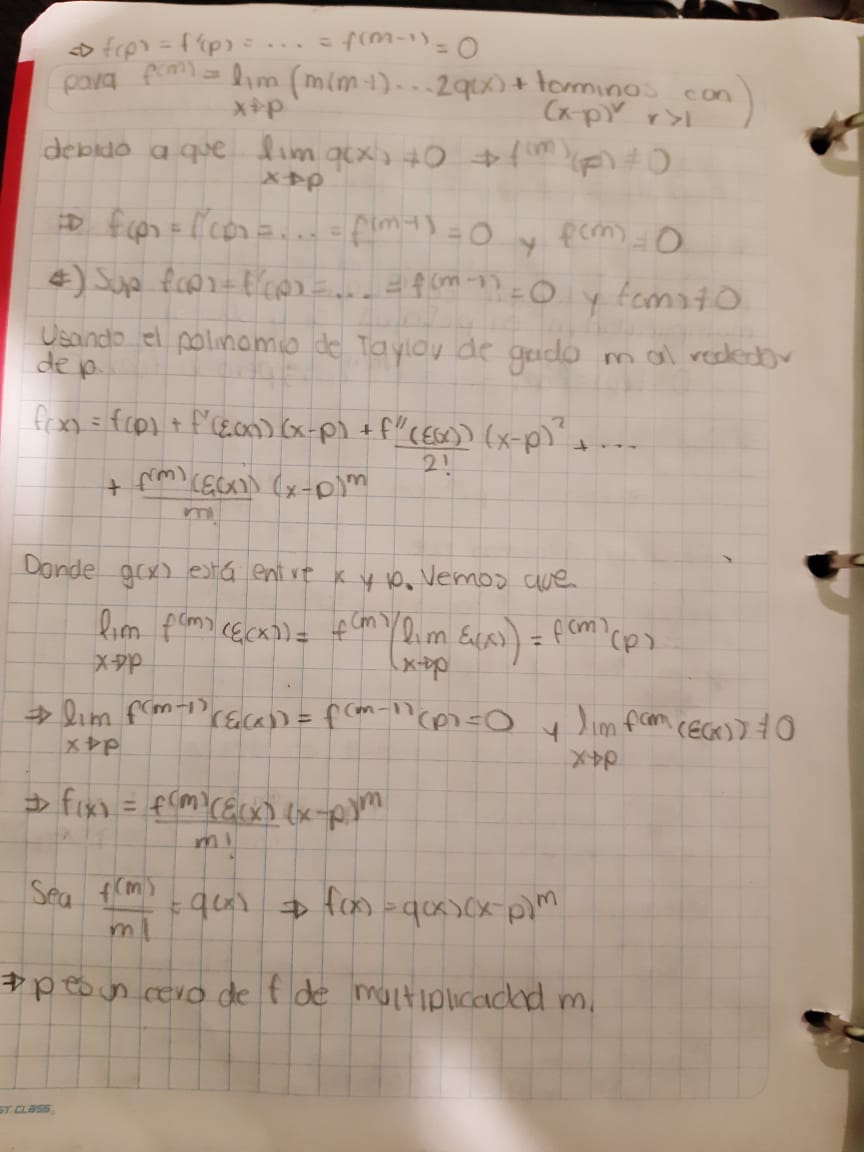 ⇒ f(p) = f'(p) = ... = f(m-1) = 0
para f(m) = lim (m(m-1)...2q(x) + terminos con)
x→p (x-p)^r r>1
debido a que lim q(x) ≠ 0 ⇒ f^(m)(p) ≠ 0
x→p
⇒ f(p) = f'(p) = ... = f^(m-1) = 0 y f(m) ≠ 0
⇐) Sup f(p) = f'(p) = ... = f(m-1) = 0 y f(m) ≠ 0
Usando el polinomio de Taylor de gado m al rededor
de p.
f(x) = f(p) + f'(ξ(x))(x-p) + f''(ξ(x)) (x-p)^2 + ...
2!
+ f^(m)(ξ(x)) (x-p)^m
m!
Donde g(x) está entre x y p. Vemos que
lim f^(m)(ξ(x)) = f^(m)(lim ξ(x)) = f^(m)(p)
x→p x→p
⇒ lim f^(m-1)(ξ(x)) = f^(m-1)(p) = 0 y lim f^(m)(ξ(x)) ≠ 0
x→p x→p
⇒ f(x) = f^(m)(ξ(x)) (x-p)^m
m!
Sea f^(m) = q(x) ⇒ f(x) = q(x)(x-p)^m
m!
⇒ p es un cero de f de multiplicadad m.
ST CLASS